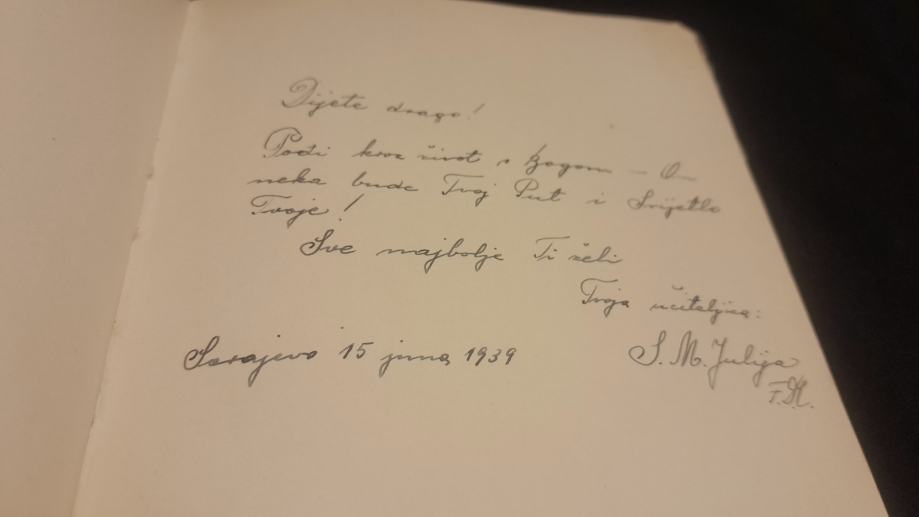 Dijete drago!
Pođi kroz život s Bogom — On
neka bude Tvoj Put i Svijetlo
Tvoje!
Sve najbolje Ti želi
Tvoja učiteljica:
Sarajevo 15 juna 1939
S. M. Julija